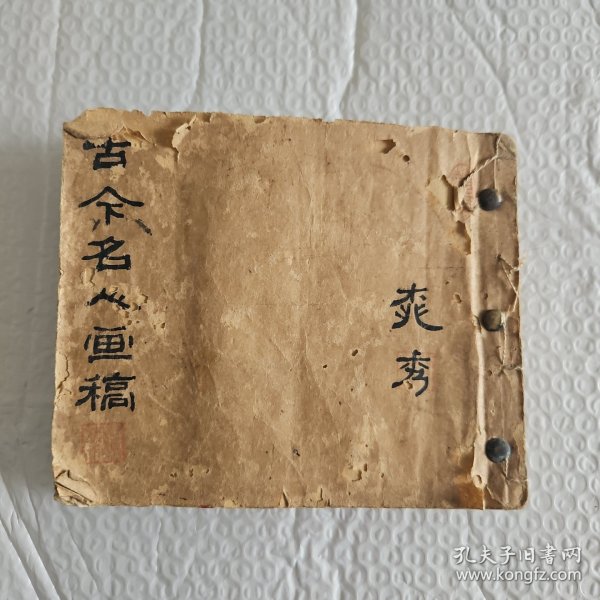 古今名人画稿
秀
孔夫子旧书网
www.kongfz.com